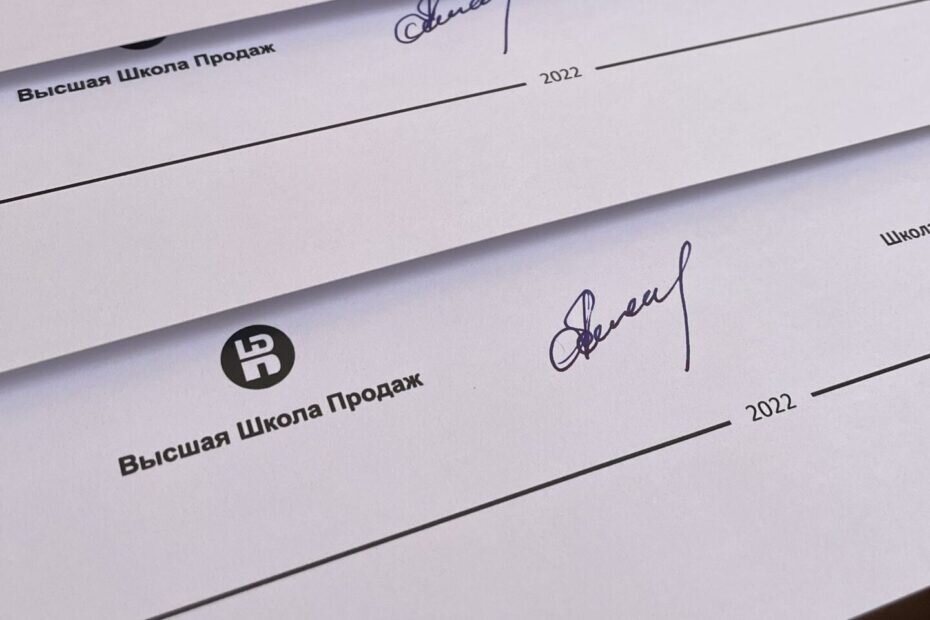 Высшая Школа Продаж
2022
Высшая Школа Продаж
2022